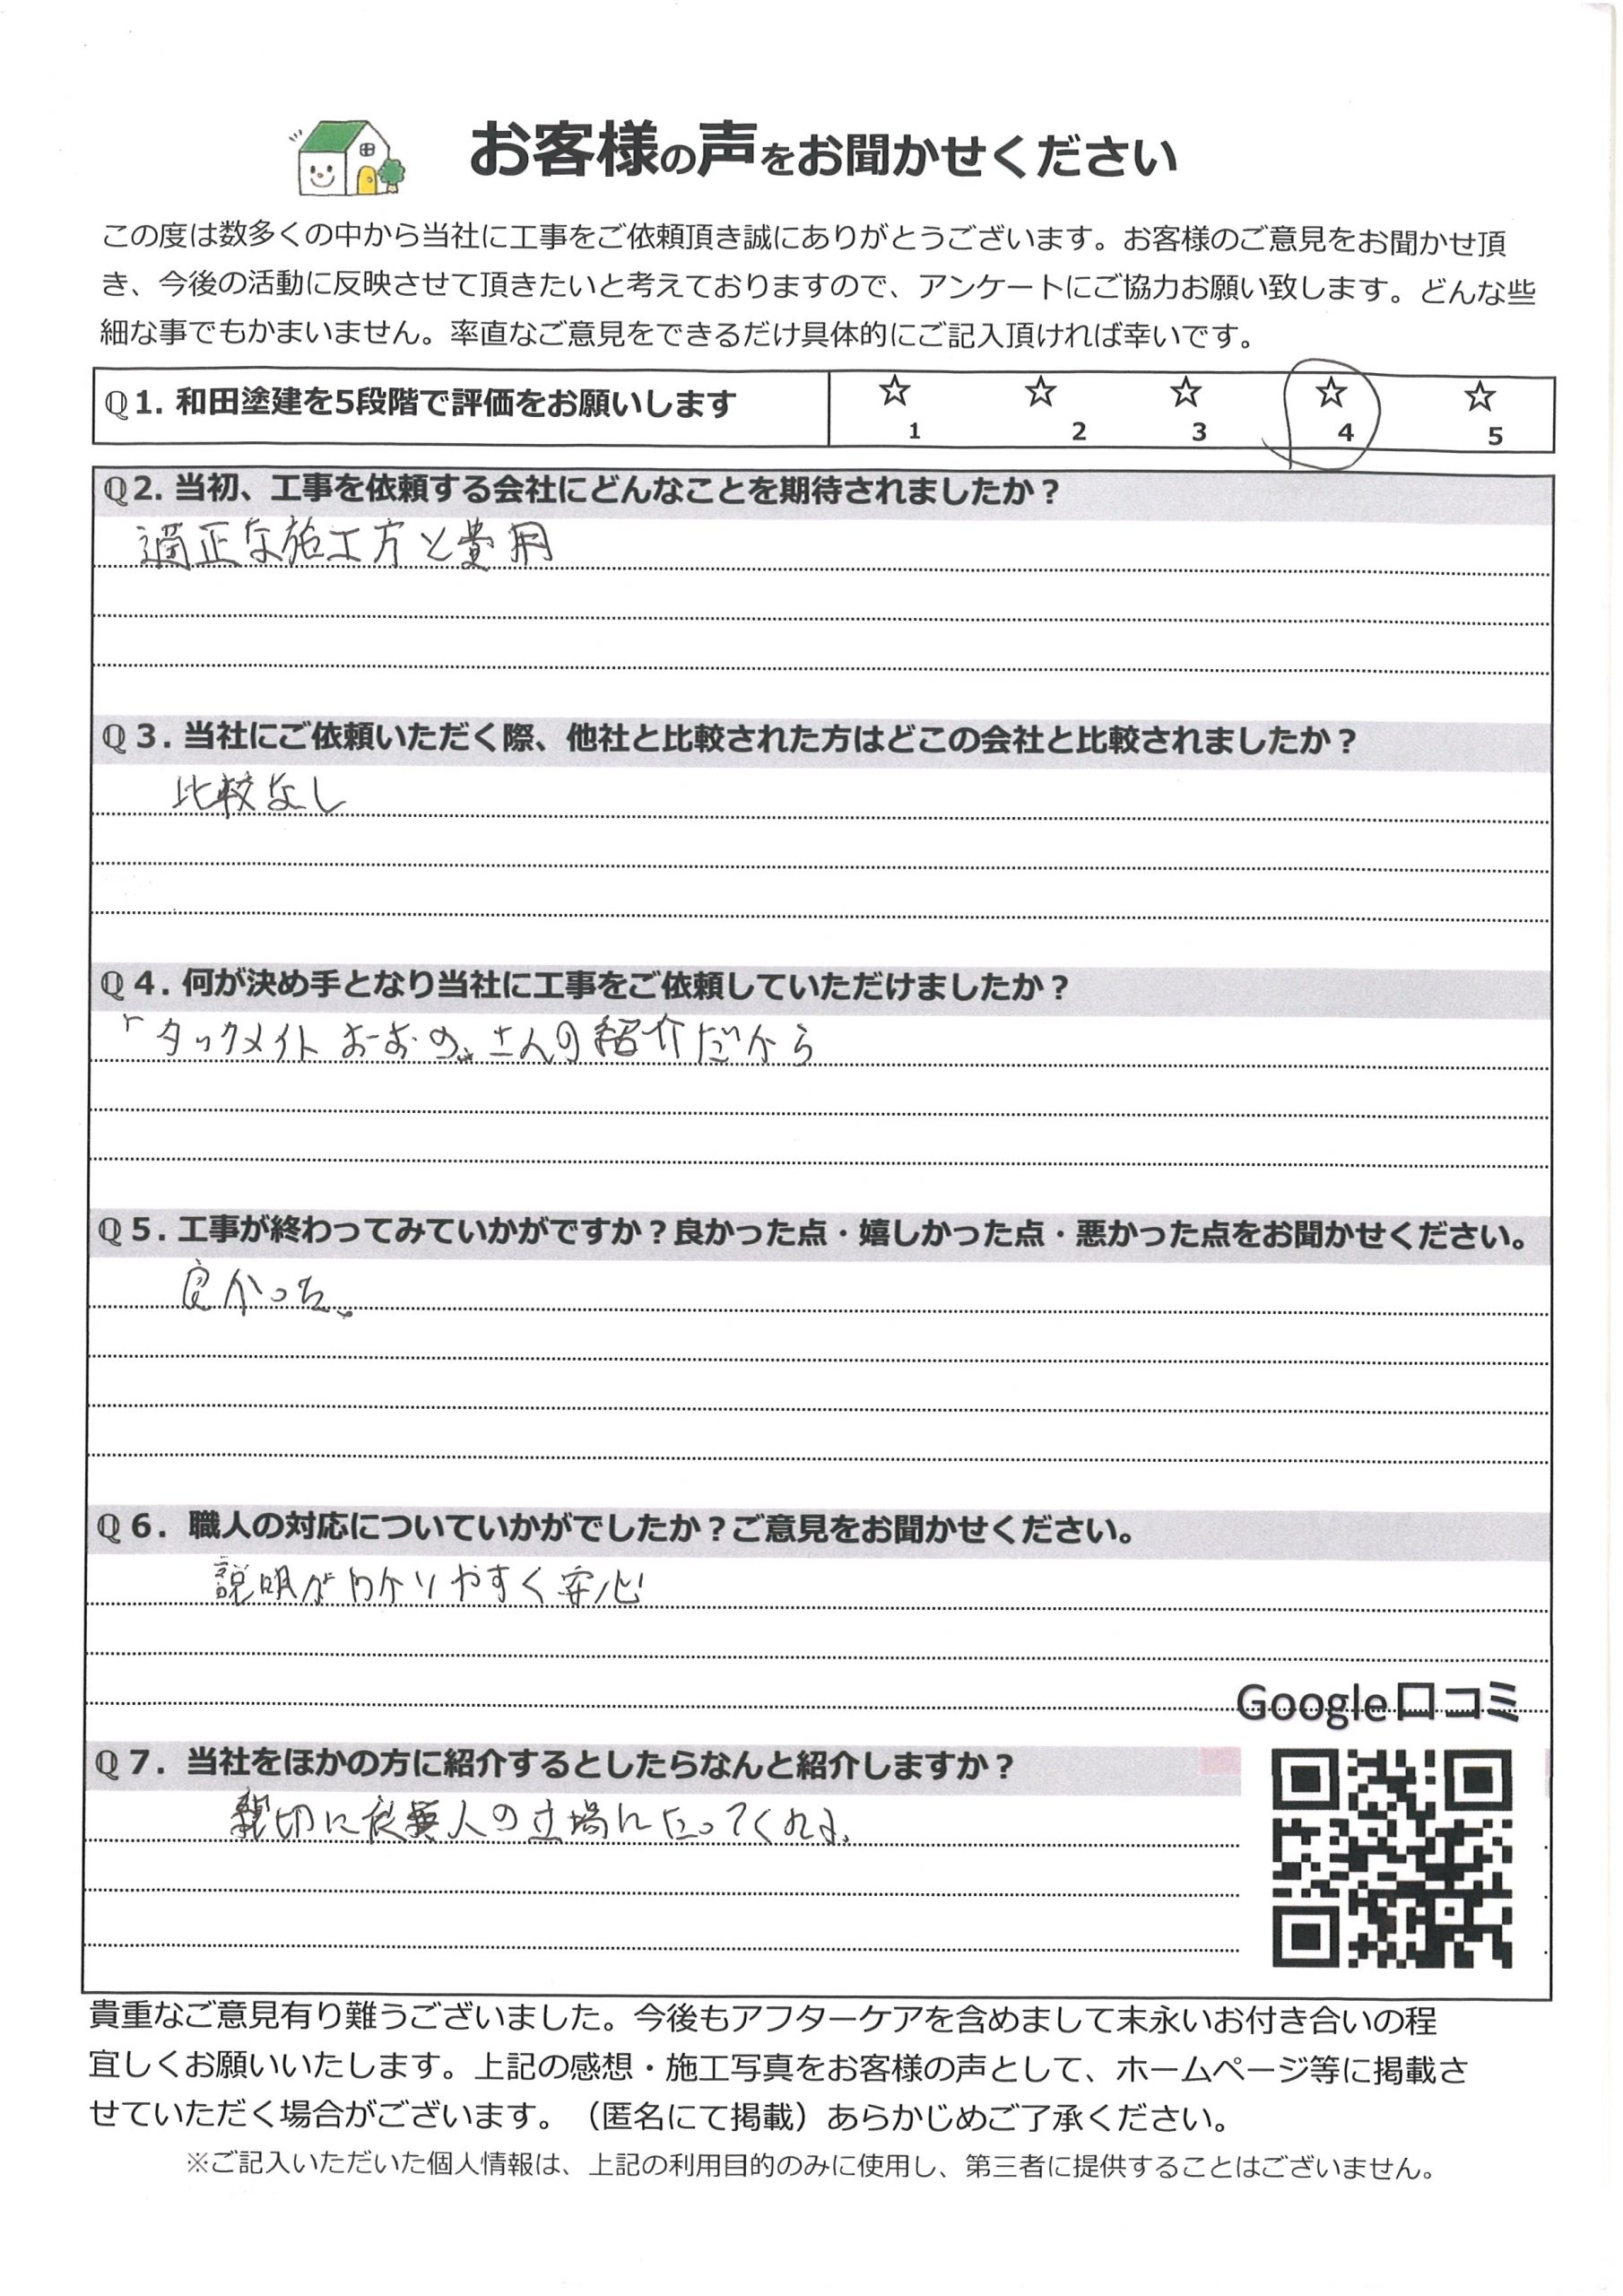 お客様の声をお聞かせください
この度は数多くの中から当社に工事をご依頼頂き誠にありがとうございます。お客様のご意見をお聞かせ頂
き、今後の活動に反映させて頂きたいと考えておりますので、アンケートにご協力お願い致します。どんな些
細な事でもかまいません。率直なご意見をできるだけ具体的にご記入頂ければ幸いです。
Q1. 和田塗建を5段階で評価をお願いします
☆ ☆ ☆ ☆ ☆
1 2 3 4 5
Q2. 当初、工事を依頼する会社にどんなことを期待されましたか？
適正な施工方と費用
Q3. 当社にご依頼いただく際、他社と比較された方はどこの会社と比較されましたか？
比較なし
Q4. 何が決め手となり当社に工事をご依頼していただけましたか？
「タックメイトおーおの」さんの紹介だから
Q5. 工事が終わってみていかがですか？良かった点・嬉しかった点・悪かった点をお聞かせください。
良かった。
Q6. 職人の対応についていかがでしたか？ご意見をお聞かせください。
説明がわかりやすく安心
Google口コミ
Q7. 当社をほかの方に紹介するとしたらなんと紹介しますか？
親切に依頼人の立場にたってくれる。
貴重なご意見有り難うございました。今後もアフターケアを含めまして末永いお付き合いの程
宜しくお願いいたします。上記の感想・施工写真をお客様の声として、ホームページ等に掲載さ
せていただく場合がございます。（匿名にて掲載）あらかじめご了承ください。
※ご記入いただいた個人情報は、上記の利用目的のみに使用し、第三者に提供することはございません。